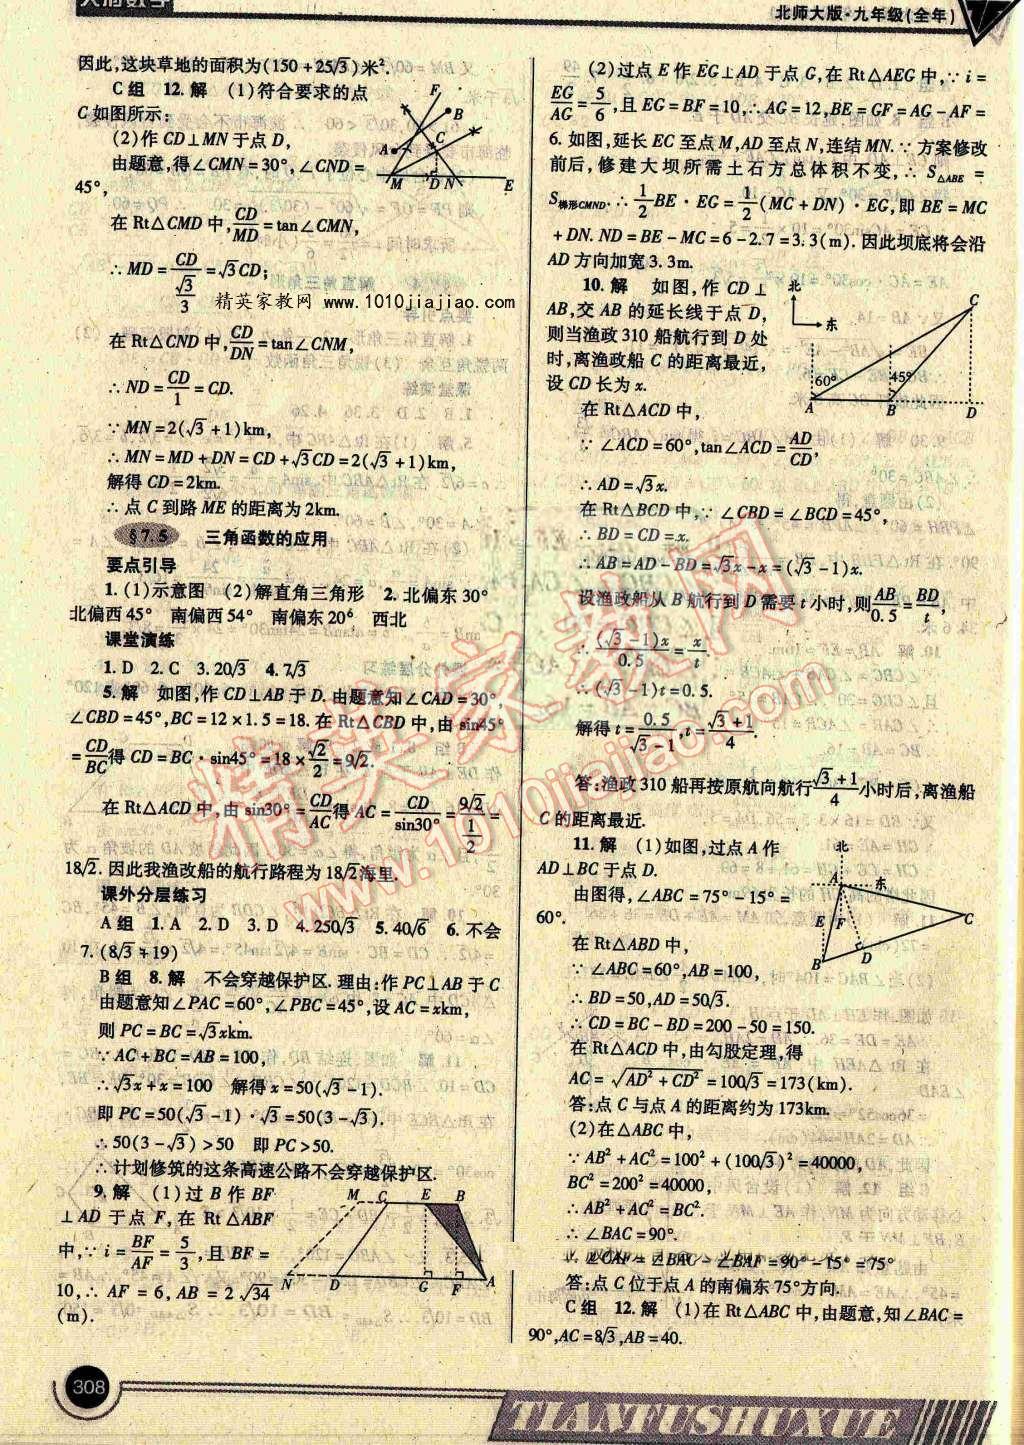 天府数学
北师大版·九年级(全年)
因此,这块草地的面积为(150+25√3)米².
C组 12.解 (1)符合要求的点
C如图所示:
(2)作CD⊥MN于点D,
由题意,得∠CMN=30°,∠CND=
45°,
在Rt△CMD中,CD/MD=tan∠CMN,
∴MD=CD/(√3/3)=√3CD;
精英家教网 www.1010jiajiao.com
在Rt△CND中,CD/DN=tan∠CNM,
∴ND=CD/1=CD.
∵MN=2(√3+1)km,
∴MN=MD+DN=CD+√3CD=2(√3+1)km,
解得CD=2km.
∴点C到路ME的距离为2km.
§7.5 三角函数的应用
要点引导
1.(1)示意图 (2)解直角三角形 2.北偏东30°
北偏西45° 南偏西54° 南偏东20° 西北
课堂演练
1.D 2.C 3.20√3 4.7√3
5.解 如图,作CD⊥AB于D.由题意知∠CAD=30°,
∠CBD=45°,BC=12×1.5=18.在Rt△CBD中,由sin45°
=CD/BC得CD=BC·sin45°=18×√2/2=9√2.
在Rt△ACD中,由sin30°=CD/AC得AC=CD/sin30°=9√2/(1/2)=
18√2.因此我渔政船的航行路程为18√2海里.
课外分层练习
A组 1.A 2.D 3.D 4.250√3 5.40√6 6.不会
7.(8√3+19)
B组 8.解 不会穿越保护区.理由:作PC⊥AB于C
由题意知∠PAC=60°,∠PBC=45°,设AC=xkm,
则PC=BC=√3xkm.
∵AC+BC=AB=100,
∴√3x+x=100 解得x=50(√3-1).
即PC=50(√3-1)·√3=50(3-√3).
∴50(3-√3)>50 即PC>50.
∴计划修筑的这条高速公路不会穿越保护区.
9.解 (1)过B作BF
⊥AD于点F,在Rt△ABF
中,∵i=BF/AF=5/3,且BF=
10,∴AF=6,AB=2√34
(m).
F
B
A
C
M D N E
M C E B
N D G F A
(2)过点E作EG⊥AD于点G,在Rt△AEG中,∵i=
EG/AG=5/6,且EG=BF=10,∴AG=12,BE=GF=AG-AF=
6.如图,延长EC至点M,AD至点N,连结MN.∵方案修改
前后,修建大坝所需土石方总体积不变,∴S△ABE=
S梯形CMND.∴1/2BE·EG=1/2(MC+DN)·EG,即BE=MC
+DN.ND=BE-MC=6-2.7=3.3(m).因此坝底将会沿
AD方向加宽3.3m.
10.解 如图,作CD⊥
AB,交AB的延长线于点D,
则当渔政310船航行到D处
时,离渔政船C的距离最近,
设CD长为x.
北
东
C
60° 45°
A B D
在Rt△ACD中,
∵∠ACD=60°,tan∠ACD=AD/CD,
∴AD=√3x.
在Rt△BCD中,∵∠CBD=∠BCD=45°,
∴BD=CD=x.
∴AB=AD-BD=√3x-x=(√3-1)x.
设渔政船从B航行到D需要t小时,则AB/0.5=BD/t,
∴(√3-1)x/0.5=x/t.
∴(√3-1)t=0.5.
解得t=0.5/(√3-1),t=(√3+1)/4.
答:渔政310船再按原航向航行(√3+1)/4小时后,离渔船
C的距离最近.
11.解 (1)如图,过点A作
AD⊥BC于点D.
由图得,∠ABC=75°-15°=
60°.
北
A 东
E F C
B D
在Rt△ABD中,
∵∠ABC=60°,AB=100,
∴BD=50,AD=50√3.
∴CD=BC-BD=200-50=150.
在Rt△ACD中,由勾股定理,得
AC=√(AD²+CD²)=100√3≈173(km).
答:点C与点A的距离约为173km.
(2)在△ABC中,
∵AB²+AC²=100²+(100√3)²=40000,
BC²=200²=40000,
∴AB²+AC²=BC².
∴∠BAC=90°.
∵∠CAF=∠BAC-∠BAF=90°-15°=75°
答:点C位于点A的南偏东75°方向.
C组 12.解 (1)在Rt△ABC中,由题意,知∠BAC=
90°,AC=8√3,AB=40.
精英家教网
www.1010jiajiao.com
308
TIANFUSHUXUE